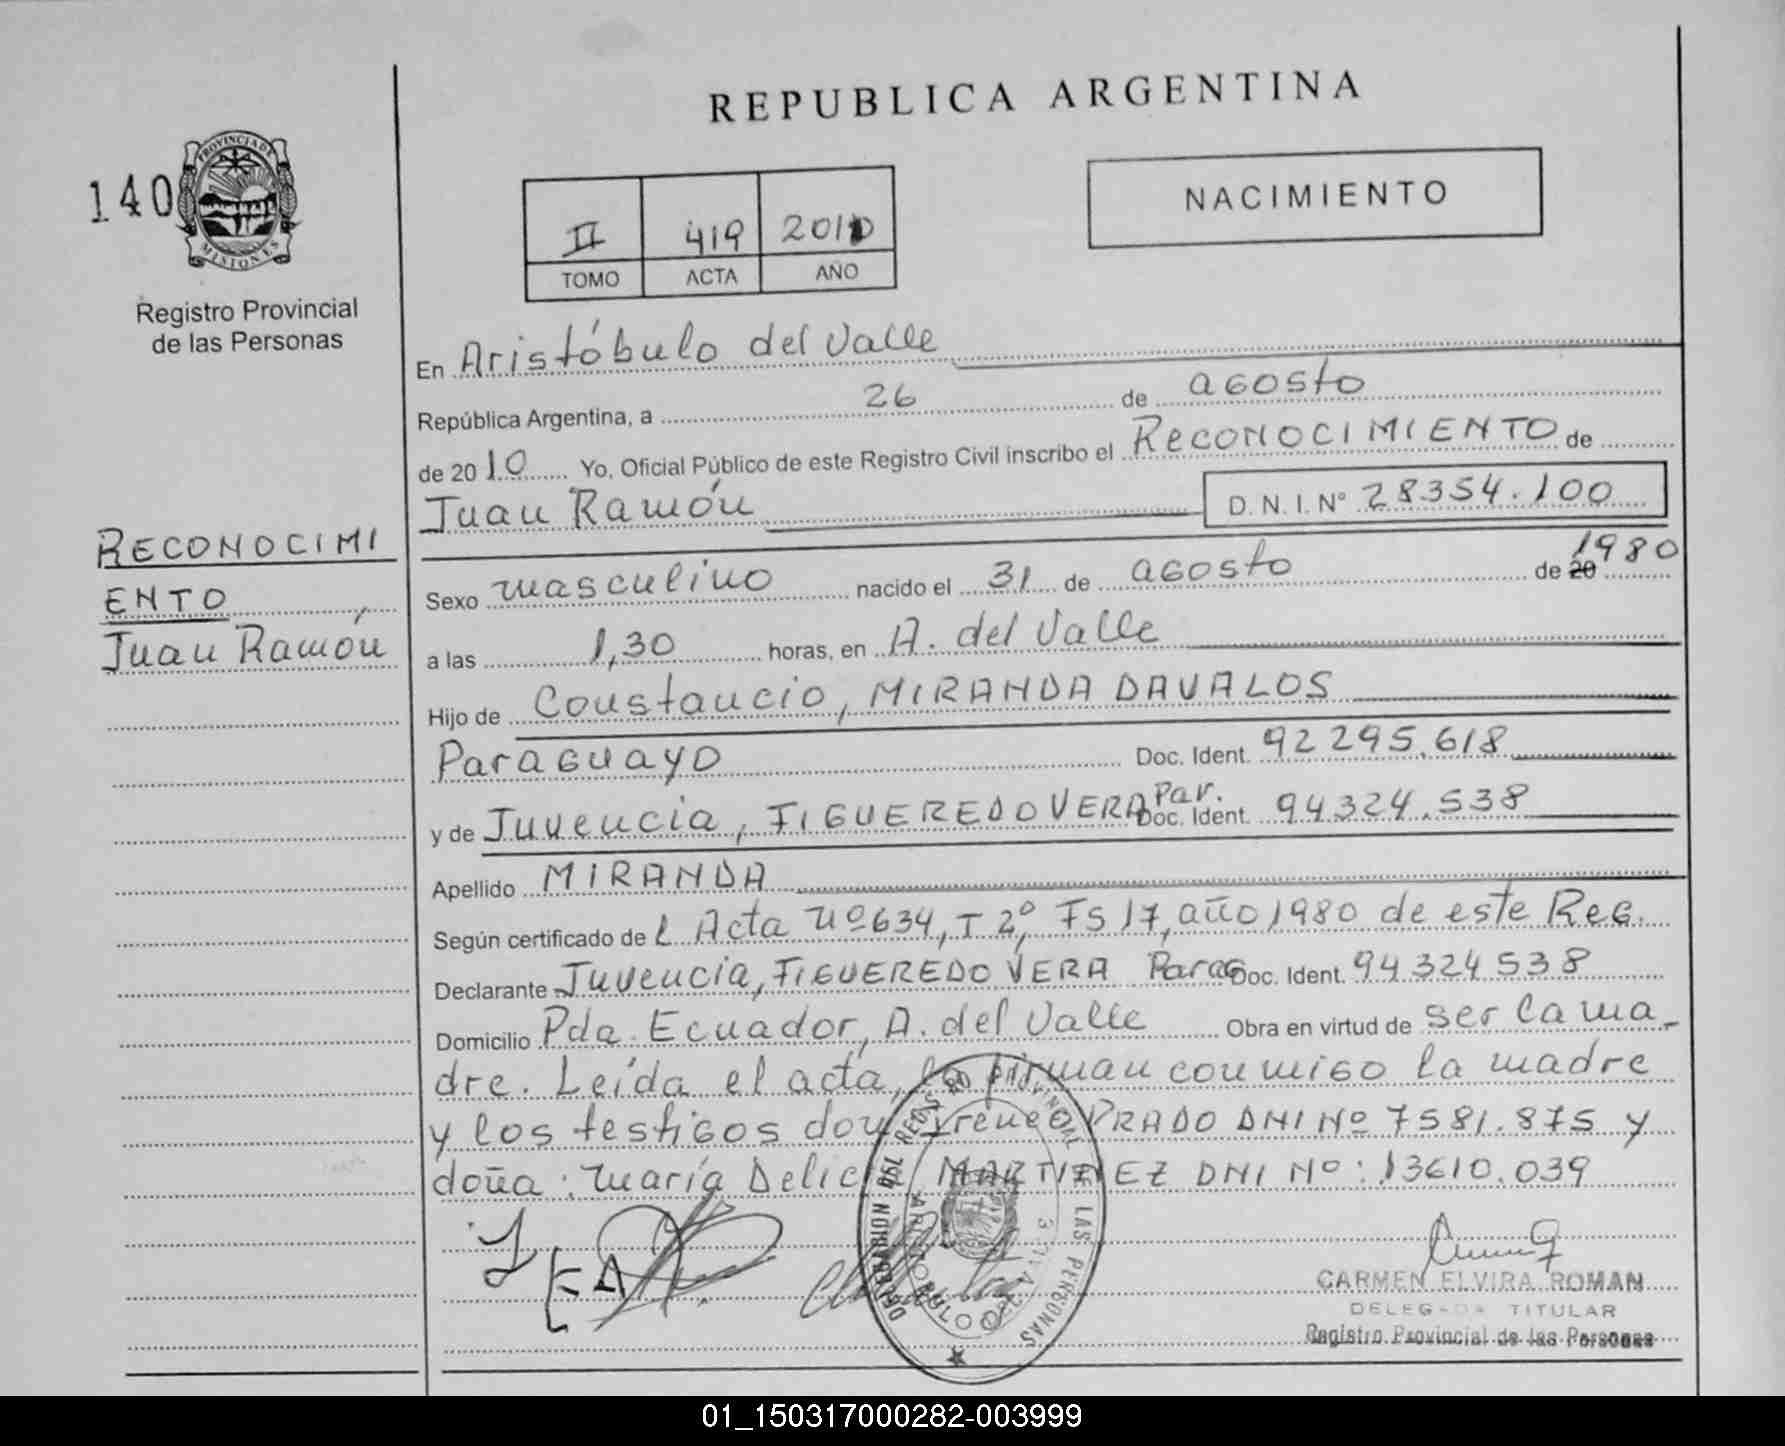 REPUBLICA ARGENTINA
140
PROVINCIA DE
MISIONES
Registro Provincial
de las Personas
II 419 2010
TOMO ACTA AÑO
NACIMIENTO
En Aristóbulo del Valle
República Argentina, a 26 de agosto
de 2010 Yo, Oficial Público de este Registro Civil inscribo el RECONOCIMIENTO de
Juan Ramón D.N.I.Nº 28354.100
RECONOCIMI
ENTO,
Juan Ramón
Sexo masculino nacido el 31 de agosto de 20 1980
a las 1,30 horas, en A. del Valle
Hijo de Constancio, MIRANDA DAVALOS
Paraguayo Doc. Ident. 92295.618
y de Juvencia, FIGUEREDO VERA Par. Doc. Ident. 94324.538
Apellido MIRANDA
Según certificado de l Acta nº 634, T 2º, Fs 17, año 1980 de este Reg.
Declarante Juvencia, FIGUEREDO VERA Parag Doc. Ident. 94324538
Domicilio Pda. Ecuador, A. del Valle Obra en virtud de ser la ma
dre. Leída el acta, la firman conmigo la madre
y los testigos don Ireneo PRADO DNI Nº 7581.875 y
doña: María Delicia MARTINEZ DNI Nº: 13610.039
CARMEN ELVIRA ROMAN
DELEGADA TITULAR
Registro Provincial de las Personas
01_150317000282-003999